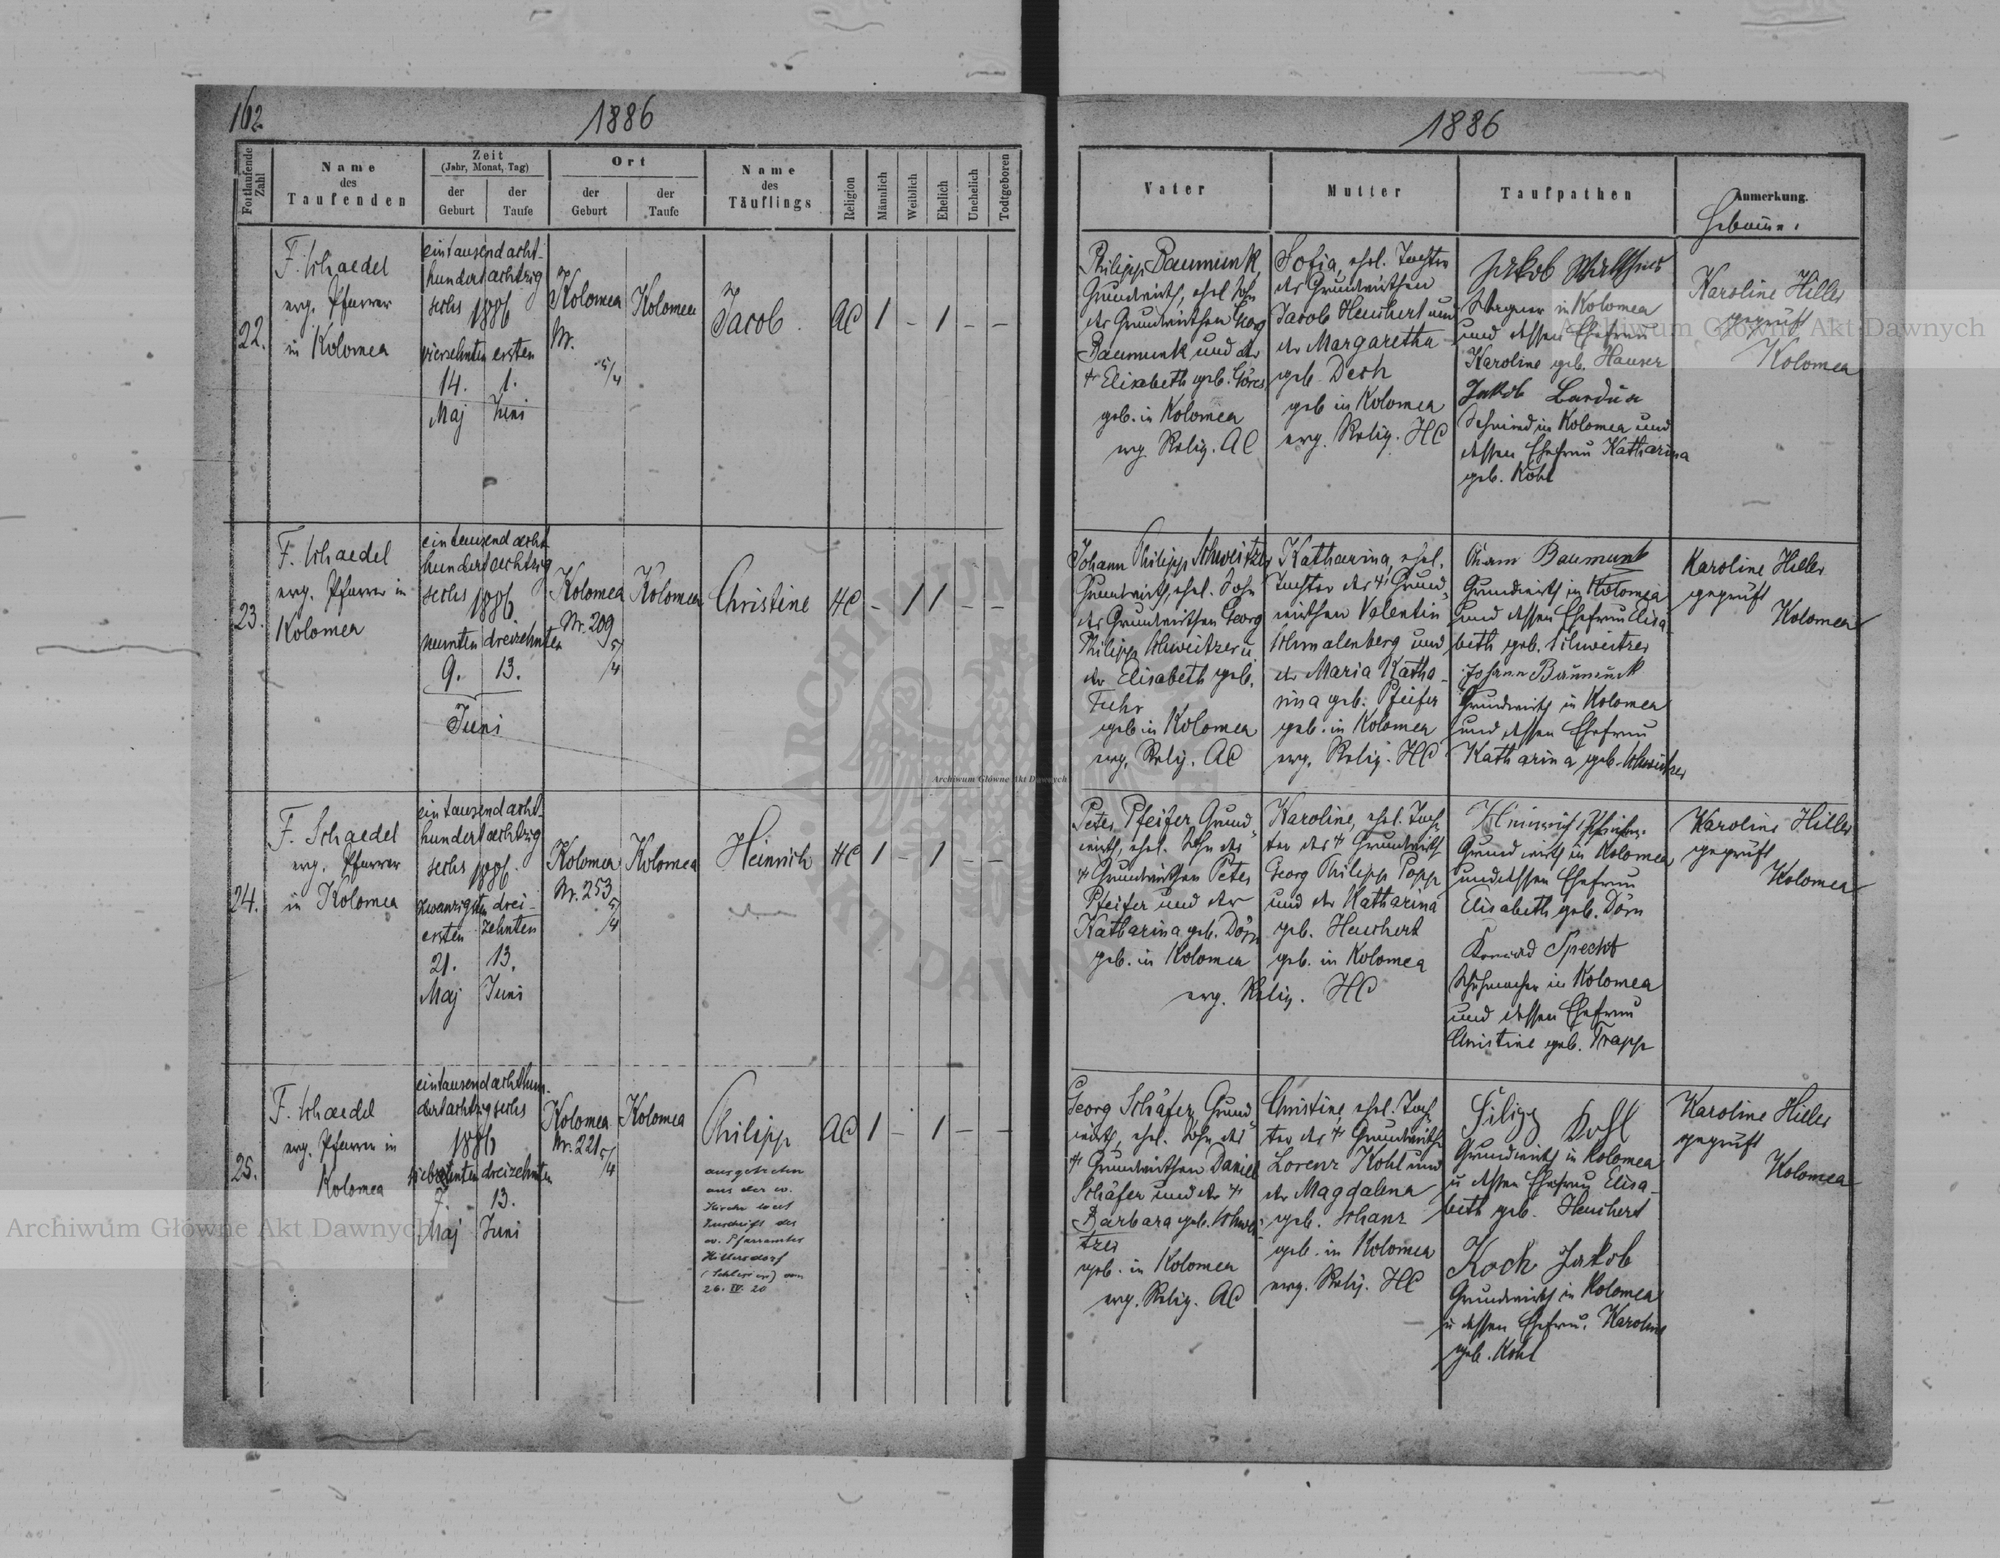 162
1886
Fortlaufende Zahl
Name
des
Taufenden
Zeit
(Jahr, Monat, Tag)
der
Geburt
der
Taufe
Ort
der
Geburt
der
Taufe
Name
des
Täuflings
Religion
Männlich
Weiblich
Ehelich
Unehelich
Todtgeboren
22.
F. Schaedel
erg. Pfarrer
in Kolomea
eintausendacht-
hundertachtzig
sechs 1886
vierzehnten ersten
14. 1.
Maj Juni
Kolomea
Nr.
5/4
Kolomea
Jacob
AC 1 - 1 - -
23.
F. Schaedel
erg. Pfarrer in
Kolomea
eintausendacht-
hundertachtzig
sechs 1886
neunten dreizehnten
9. 13.
Juni
Kolomea
Nr. 209
5/4
Kolomea
Christine
HC - 1 1 - -
24.
F. Schaedel
erg. Pfarrer
in Kolomea
eintausendacht-
hundertachtzig
sechs 1886.
einundzwanzig
ersten
drei-
zehnten
21. 13.
Maj Juni
Kolomea
Nr. 253
5/4
Kolomea
Heinrich
HC 1 - 1 - -
25.
F. Schaedel
erg. Pfarrer in
Kolomea
eintausendachthun-
dertachtzigsechs
1886
siebenten dreizehnten
7. 13.
Maj Juni
Kolomea
Nr. 221
5/4
Kolomea
Philipp
ausgetreten
aus der ev.
Kirche laut
Zuschrift des
ev. Pfarramtes
Hillersdorf
(Schlesien) vom
26. IV. 20
AC 1 - 1 - -
1886
Vater
Mutter
Taufpathen
Anmerkung.
Hebamme.
Philipp Baumunk
Grundwirth, ehel. Sohn
des Grundwirthen Georg
Baumunk und der
Elisabeth geb. Göres
geb. in Kolomea
erg. Relig. AC
Sofia, ehel. Tochter
des Grundwirthen
Jacob Heuchert und
der Margaretha
geb. Desh
geb in Kolomea
erg. Relig. HC
Jakob
Wagner in Kolomea
und dessen Ehefrau
Karoline geb. Hauser
Jakob
Schmied in Kolomea und
dessen Ehefrau Katharina
geb. Kohl
Karoline Hiller
geprüft
Kolomea
Johann Philipp Schweitzer
Grundwirth, ehel. Sohn
des Grundwirthen Georg
Philipp Schweitzer u
der Elisabeth geb.
Fuhr
geb in Kolomea
erg. Relig. AC
Katharina, ehel.
Tochter des Grund-
wirthen Valentin
Schmalenberg und
der Maria Katha-
rina geb. Pfeifer
geb. in Kolomea
erg. Relig. HC
Baumunk
Grundwirth in Kolomea
und dessen Ehefrau Elisa-
beth geb. Schweitzer
Johann Baumunk
Grundwirth in Kolomea
und dessen Ehefrau
Katharina geb. Schweitzer
Karoline Hiller
geprüft
Kolomea
Peter Pfeifer Grund-
wirth, ehel. Sohn des
Grundwirthen Peter
Pfeifer und der
Katharina geb. Dörn
geb. in Kolomea
Karoline, ehel. Toch-
ter des Grundwirth
Georg Philipp Popp
und der Katharina
geb. Heuchert
geb. in Kolomea
erg. Relig. HC
Heinrich Pfeifer
Grundwirth in Kolomea
und dessen Ehefrau
Elisabeth geb. Dörn
Konrad Specht
Schuhmacher in Kolomea
und dessen Ehefrau
Christine geb. Trapp
Karoline Hiller
geprüft
Kolomea
Georg Schäfer Grund-
wirth, ehel. Sohn des
Grundwirthen Daniel
Schäfer und der
Barbara geb. Schwei-
tzer
geb. in Kolomea
erg. Relig. AC
Christine ehel. Toch-
ter des Grundwirth
Lorenz Kohl und
der Magdalena
geb. Schanz
geb. in Kolomea
erg. Relig. HC
Filipp Kohl
Grundwirth in Kolomea
u dessen Ehefrau Elisa-
beth geb. Heuchert
Koch Jakob
Grundwirth in Kolomea
u dessen Ehefrau Karoline
geb. Kohl
Karoline Hiller
geprüft
Kolomea
Archiwum Główne Akt Dawnych
Archiwum Główne Akt Dawnych
Archiwum Główne Akt Dawnych